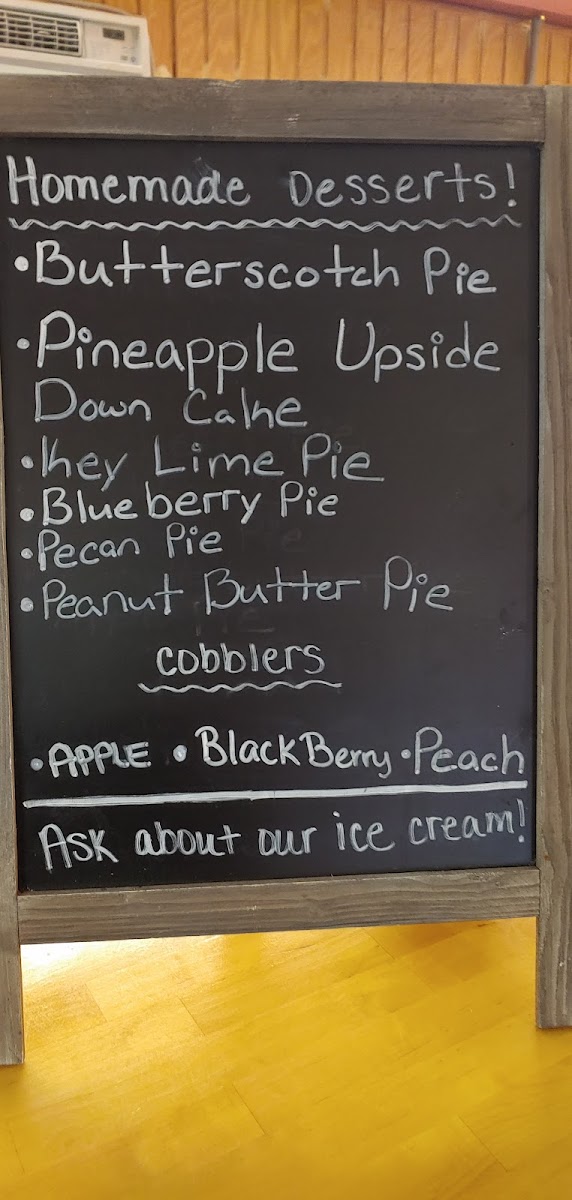 Homemade Desserts!
•Butterscotch Pie
•Pineapple Upside
Down Cake
•Key Lime Pie
•Blueberry Pie
•Pecan Pie
•Peanut Butter Pie
cobblers
•APPLE •BlackBerry •Peach
Ask about our ice cream!